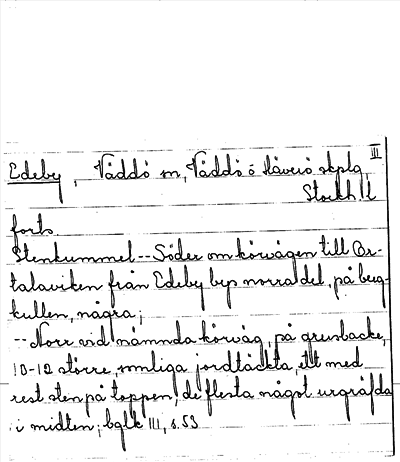 III
Edeby, Väddö sn, Väddö o Häverö skplg
Stockh. ll
forts.
Stenkummel -- Söder om körvägen till Or-
talaviken från Edeby bys norra del, på berg-
kullen, några;
-- Norr vid nämnda körväg, på grusbacke,
10-12 större, somliga jordtäckta, ett med
rest sten på toppen, de flesta något urgräfda
i midten; bglk III, s. 53